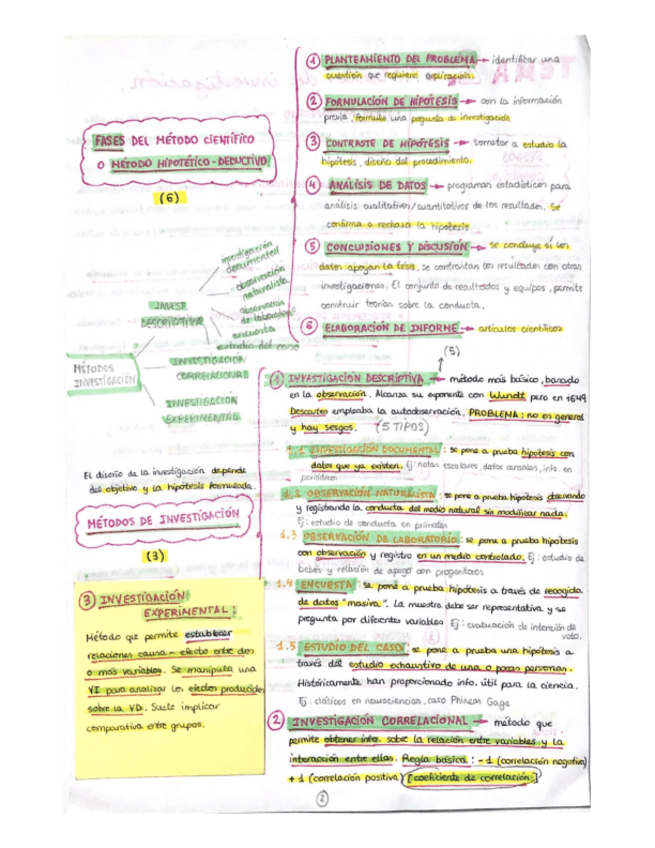 FASES DEL MÉTODO CIENTÍFICO
O MÉTODO HIPOTÉTICO-DEDUCTIVO
(6)
① PLANTEAMIENTO DEL PROBLEMA → identificar una
cuestión que requiera explicación.
② FORMULACIÓN DE HIPÓTESIS → con la información
previa, formula una pregunta de investigación
③ CONTRASTE DE HIPÓTESIS → someter a estudio la
hipótesis, diseño del procedimiento.
④ ANÁLISIS DE DATOS → programas estadísticos para
análisis cualitativos/cuantitativos de los resultados. Se
confirma o rechaza la hipótesis
⑤ CONCLUSIONES Y DISCUSIÓN → se concluye si los
datos apoyan la tesis, se contrastan los resultados con otras
investigaciones. El conjunto de resultados y equipos, permite
construir teorías sobre la conducta.
⑥ ELABORACIÓN DE INFORME → artículos científicos
MÉTODOS
INVESTIGACIÓN
INVEST
DESCRIPTIVA
investigación
documental
observación
naturalista
observación
de laboratorio
encuesta
estudio del caso
INVESTIGACIÓN
CORRELACIONAL
INVESTIGACIÓN
EXPERIMENTAL
El diseño de la investigación depende
del objetivo y la hipótesis formulada.
MÉTODOS DE INVESTIGACIÓN
(3)
(5)
① INVESTIGACIÓN DESCRIPTIVA → método más básico, basado
en la observación. Alcanza su exponente con Wundt pero en 1649
Descartes empleaba la autoobservación. PROBLEMA: no es general
y hay sesgos. (5 TIPOS)
1.1 INVESTIGACIÓN DOCUMENTAL: se pone a prueba hipótesis con
datos que ya existen. Ej: notas escolares, datos censales, info. en
periódicos
1.2 OBSERVACIÓN NATURALISTA: se pone a prueba hipótesis observando
y registrando la conducta del medio natural sin modificar nada.
Ej: estudio de conducta en primates
1.3 OBSERVACIÓN DE LABORATORIO: se pone a prueba hipótesis
con observación y registro en un medio controlado. Ej: estudio de
bebés y relación de apego con progenitores
1.4 ENCUESTA: se pone a prueba hipótesis a través de recogida
de datos "masiva". La muestra debe ser representativa y se
pregunta por diferentes variables Ej: evaluación de intención de
voto.
1.5 ESTUDIO DEL CASO: se pone a prueba una hipótesis a
través del estudio exhaustivo de una o pocas personas.
Históricamente han proporcionado info. útil para la ciencia.
Ej: clásicos en neurociencian, caso Phineas Gage
② INVESTIGACIÓN CORRELACIONAL → método que
permite obtener info. sobre la relación entre variables y la
interacción entre ellas. Regla básica: -1 (correlación negativa)
+1 (correlación positiva) [coeficiente de correlación]
③ INVESTIGACIÓN
EXPERIMENTAL:
Método que permite establecer
relaciones causa-efecto entre dos
o más variables. Se manipula una
VI para analizar los efectos producidos
sobre la VD. Suele implicar
comparativa entre grupos.
2